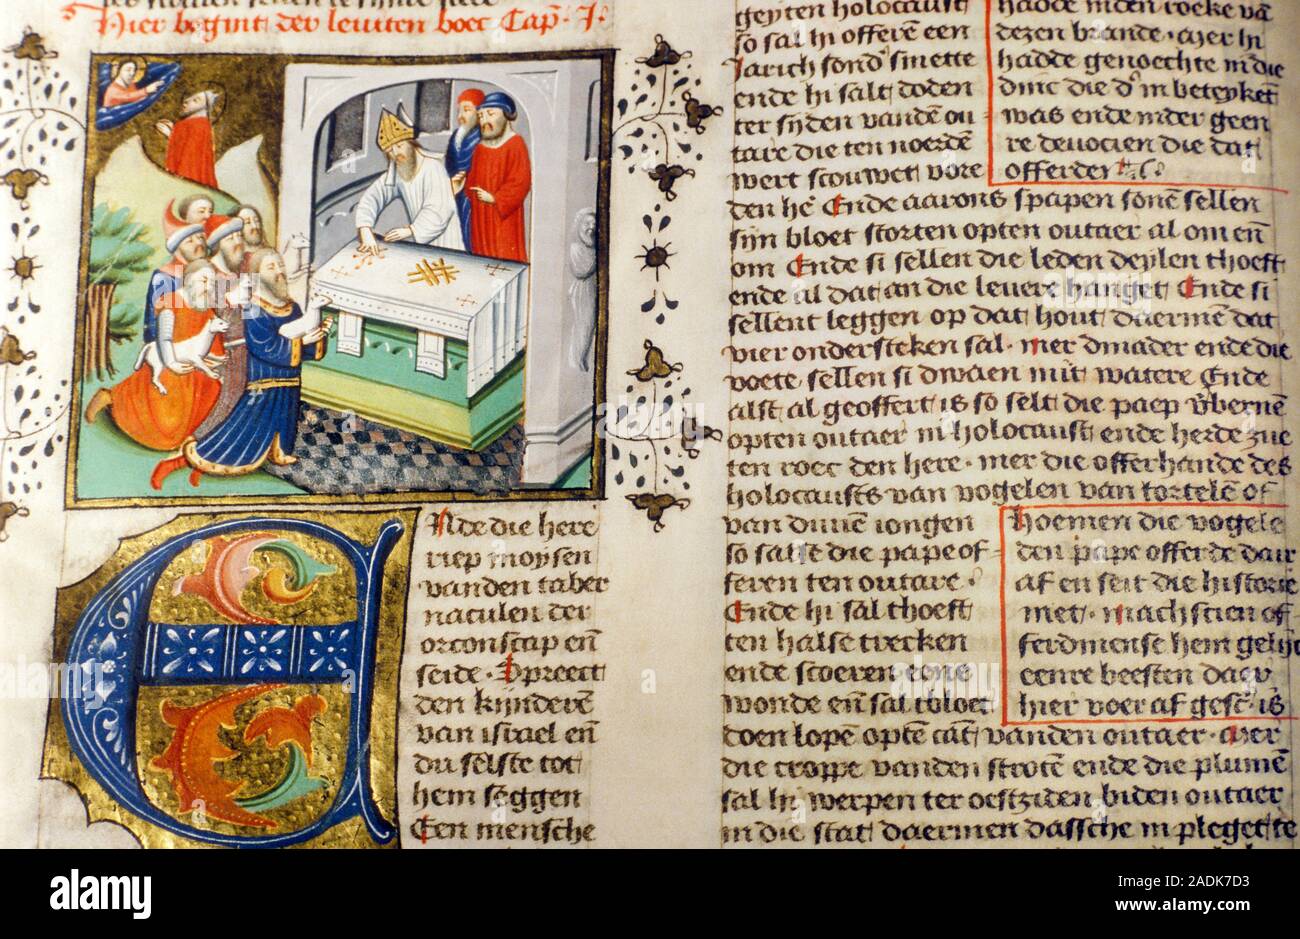 Hier begint der leuiten boec Cap̄. I.
Ende die here
riep moysen
vanden taber
naculen der
orconscap en̄
seide. Spreect
den kijnderē
van israel en̄
du selste tot
hem seggen
Een mensche
geyten holocaust
so sal hi offeren een
Jarich sond smette
ende hi salt doden
ter sijden vandē ou-
tare die ten noerdē
wert scouwet vore
den hē Ende aarons papen sonē sellen
sijn bloet storten opten outaer al om en̄
om Ende si sellen die leden deylen thoeft
ende al dat an die leuere hanget Ende si
sellent leggen op dat hout daermē dat
vier ondersteken sal. mer dmader ende die
voete. sellen si dwaen mit watere Ende
alst al geoffert is so selt die paep v̄bernē
opten outaer in holocaust ende herde zue
ten roec den here. mer die offerhande des
holocausts van vogelen van tortelē of
van duuē iongen
so salse die pape of-
feren ten outare.
Ende hi sal thoeft
ten halse trecken
ende stoeren eene
wonde en̄ sal tbloet
doen lopē optē cāt vanden outaer. mer
die croppe vanden strotē ende die plumē
sal hi werpen ter oestziden biden outaer
in die stat daermen dassche in pleget te
hadde inden roeke vā
dezen brande. mer hi
hadde genoechte in die
dinc die dr in beteykēt
was ende inder geen
re deuocien die dat
offerden
Hoemen die vogele
den pape offerde dair
af en seit die historie
met. machscien of-
ferdmense hem gelijc
eenre beesten daer
hier voer af gesc̄. is
alamy
Image ID: 2ADK7D3
www.alamy.com